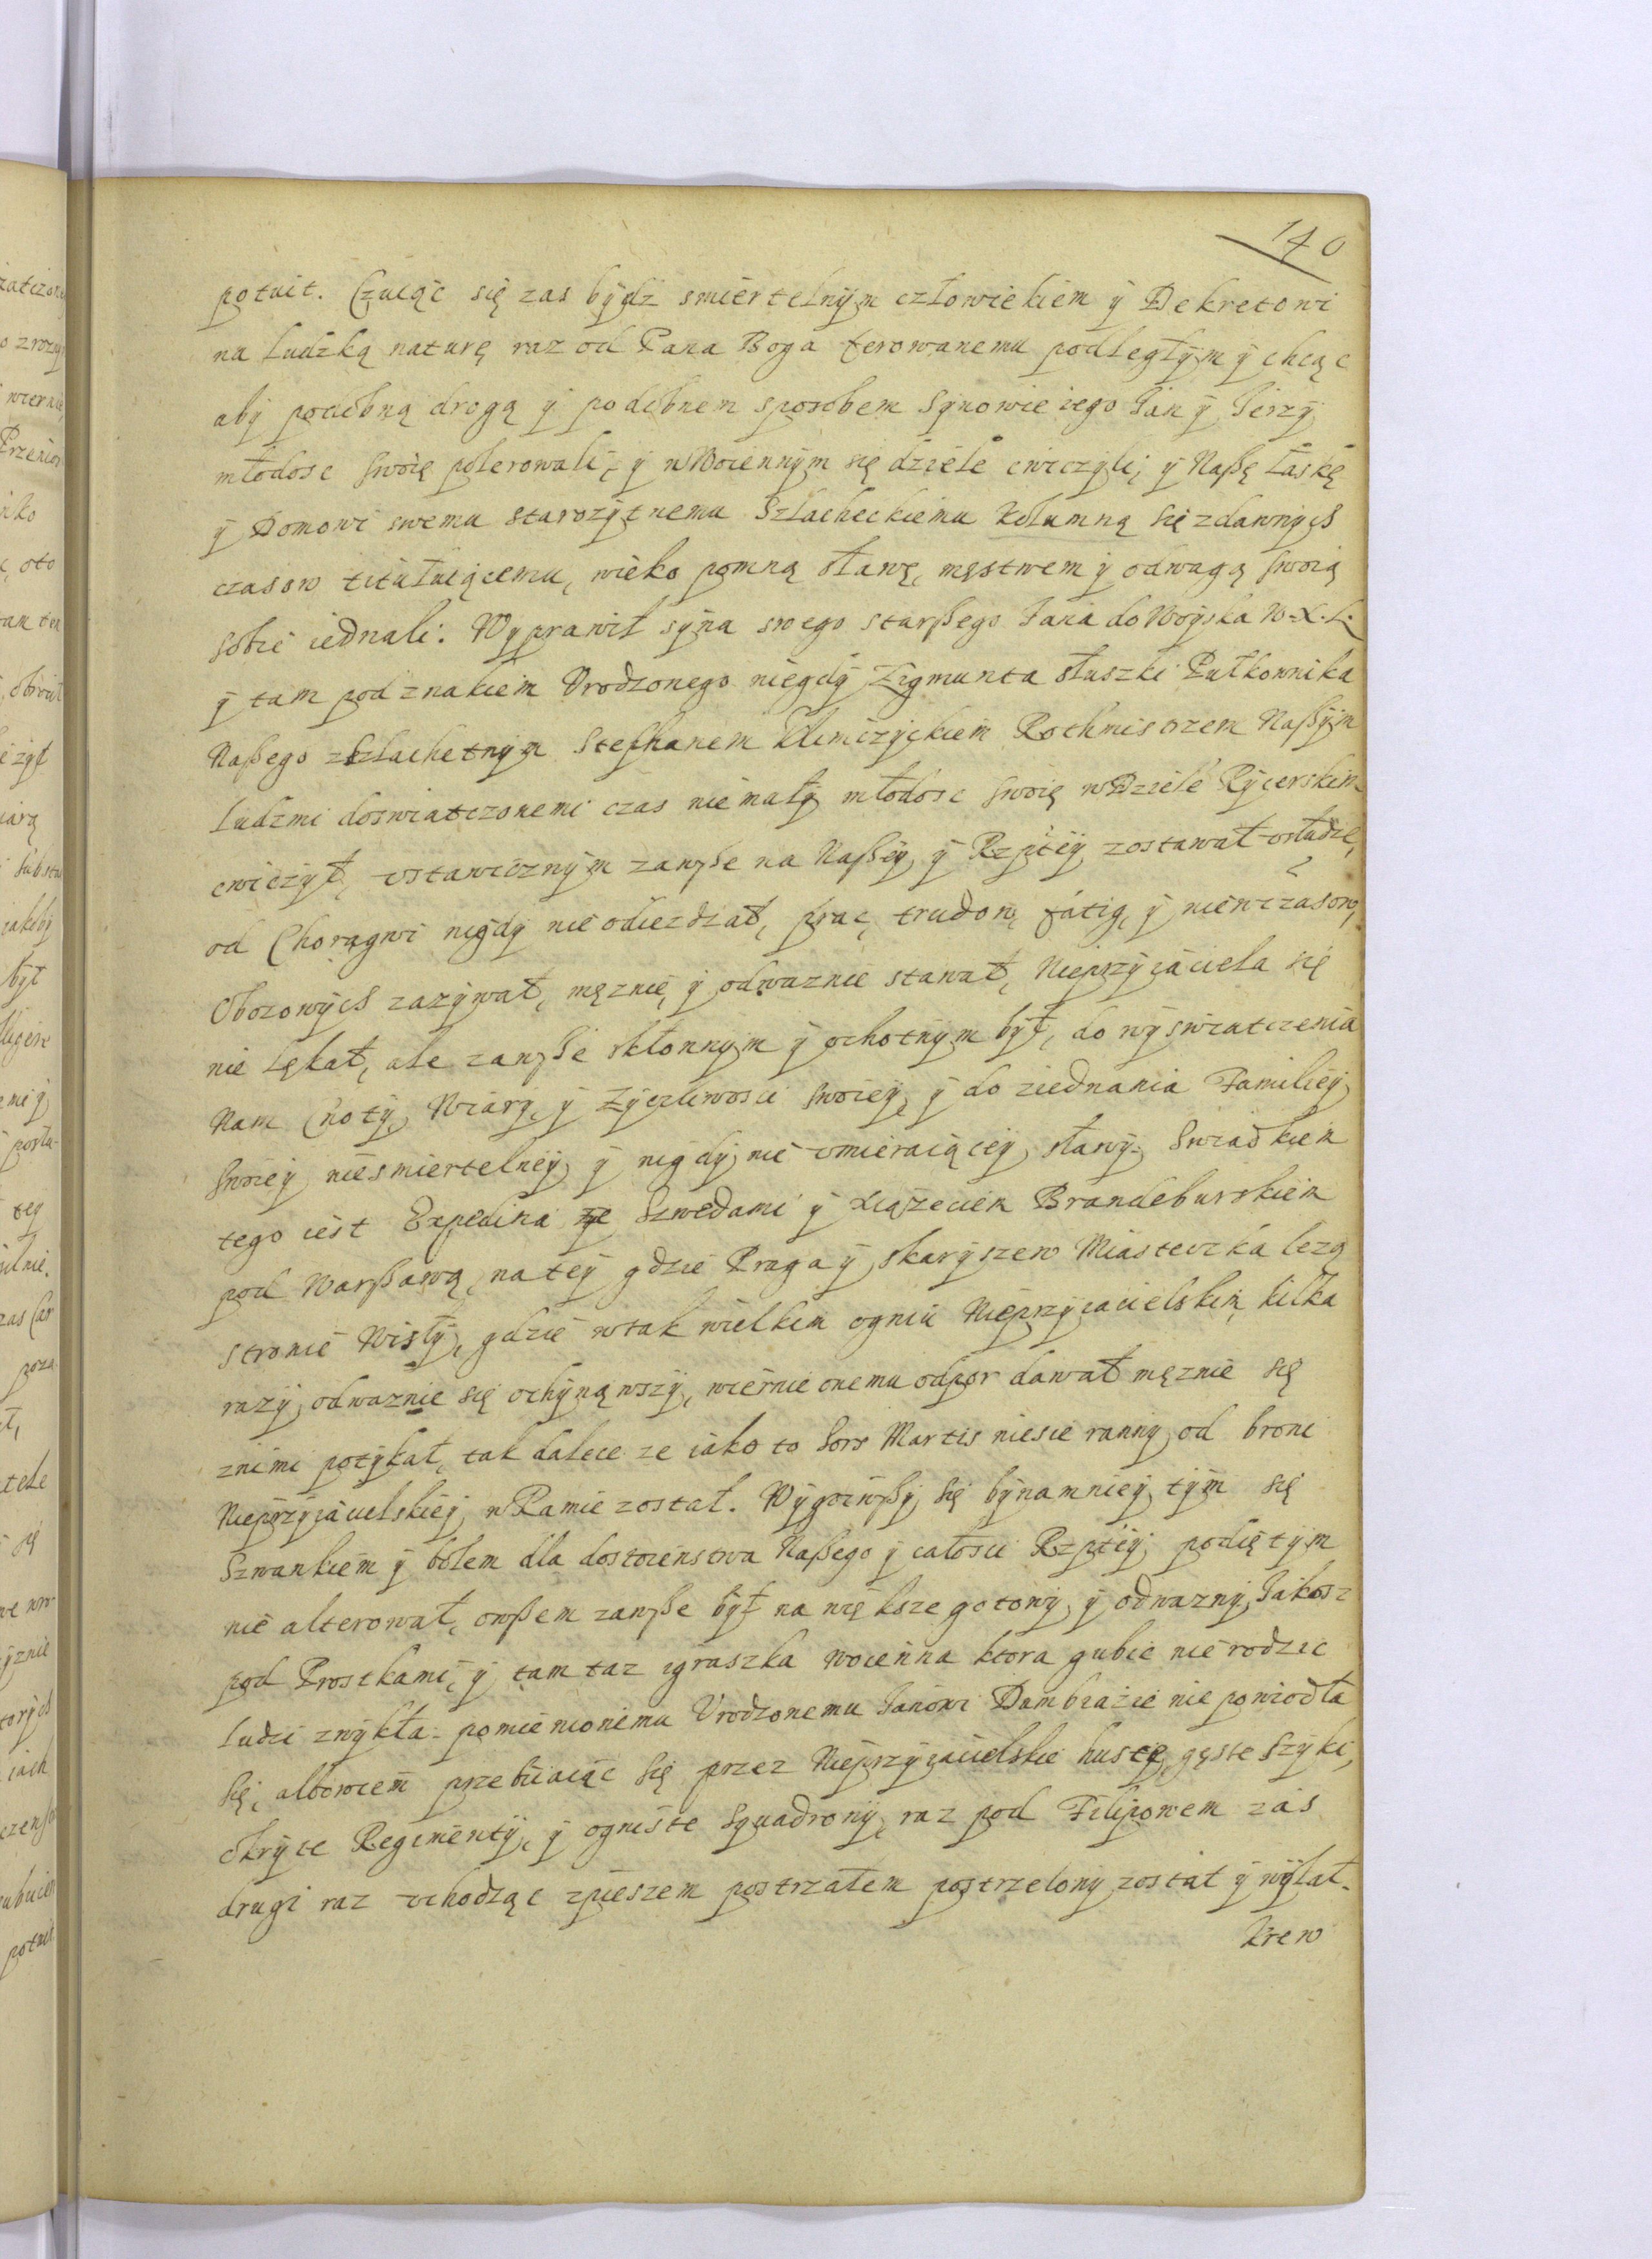 140
potuit. Czuiąc się zas bydz smiertelnym człowiekiem ÿ Dekretowi
na ludzką naturę raz od Pana Boga ferowanemu podległÿm ÿ chcąc
abÿ podobną drogą ÿ podobnem sposobem Synowie iego Jan ÿ Jerzÿ
młodosc swoię polerowali, ÿ w Woiennÿm się dziele cwiczÿli, ÿ Naßę łaskę
ÿ Domowi swemu starozÿtnemu Szlacheckiemu Kolumną się zdawnÿch
czasow tÿtułuiącemu, wieko pomną sławę, męstwem ÿ odwagą swoią
sobie iednali. Wÿprawił sÿna swego starßego Jana do Woÿska W. X. L.
ÿ tam pod znakiem Vrodzonego niegdÿ Zigmunta słuszki Pułkownika
Naßego z szlachetnÿm Stephanem Klimczÿckiem Rothmistrzem Naßÿm
ludzmi doswiatczonemi czas niemałÿ młodosc swoię w Dziele Rÿcerskim
cwiczÿł, vstawicznÿm zawße na Naßeÿ ÿ Rzpteÿ zostawał vsłudze,
od Chorągwi nigdÿ nie odiezdzał, prac, trudow, fatig, ÿ niewczasow,
Obozowÿch zazÿwał, męznie, ÿ odwaznie stawał, Nieprzÿiaciela się
nie lękał, ale zawße skłonnym ÿ ochotnÿm bÿł, do wÿswiatczenia
Nam Cnotÿ, Wiarÿ, ÿ Zÿczliwosci swoieÿ, ÿ do ziednania Familieÿ
swoieÿ niesmiertelneÿ, ÿ nigdÿ nie vmieraiąceÿ sławÿ. Swiadkiem
tego iest Expedÿcia ze Szwedami ÿ Xiązeciem Brandeburskiem
pod Warßawą na teÿ gdzie Praga ÿ Skarÿszew Miasteczka lezą
stronie Wisłÿ, gdzie w tak wielkim ogniu Nieprzÿiacielskim, kilka
razÿ odwaznie się ochÿnąwszÿ, wiernie onemu odpor dawał męznie się
znimi potÿkał, tak dalece ze iako to Sors Martis niesie rannÿ od broni
Nieprzÿiacielskieÿ w Ramie został. Wÿgoiwßÿ się bÿnamnieÿ tÿm się
Szwankiem ÿ bolem dla dostoienstwa Naßego ÿ całosci Rzpteÿ podiętÿm
nie alterował, owßem zawße bÿł na większe gotowÿ ÿ odwaznÿ, Jakosz
pod Prostkami, ÿ tam taz igraszka woienna ktora gubic nie rodzic
ludzi zwÿkła. pomienionemu Vrodzonemu Janowi Dambrazie nie powiodła
Się, albowiem przebiiaiąc się przez Nieprzÿiacielskie hufcÿ, gęste Szÿki,
okrÿte Regimentÿ, ÿ ogniste Squadronÿ, raz pod Filipowem zas
drugi raz vchodząc zpieszem postrzałem postrzelonÿ został ÿ wÿlał.
krew